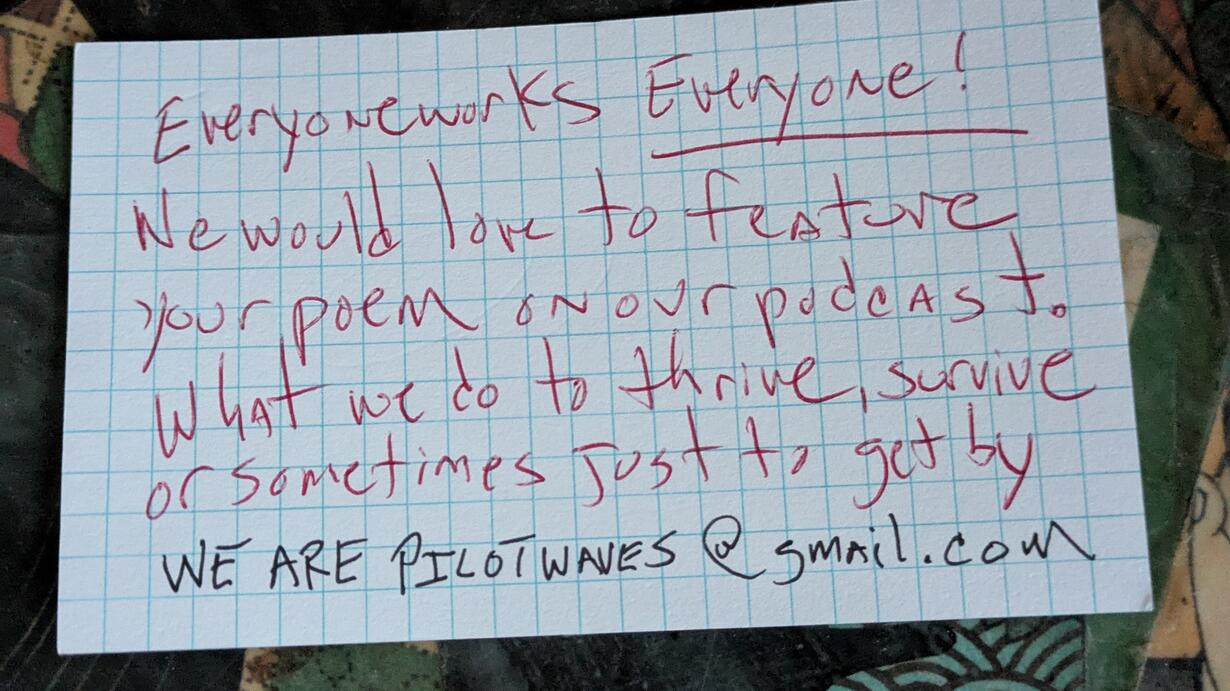 Everyoneworks Everyone!
We would love to feature
your poem on our podcast.
What we do to thrive, survive
or sometimes just to get by
WE ARE PILOTWAVES@gmail.com